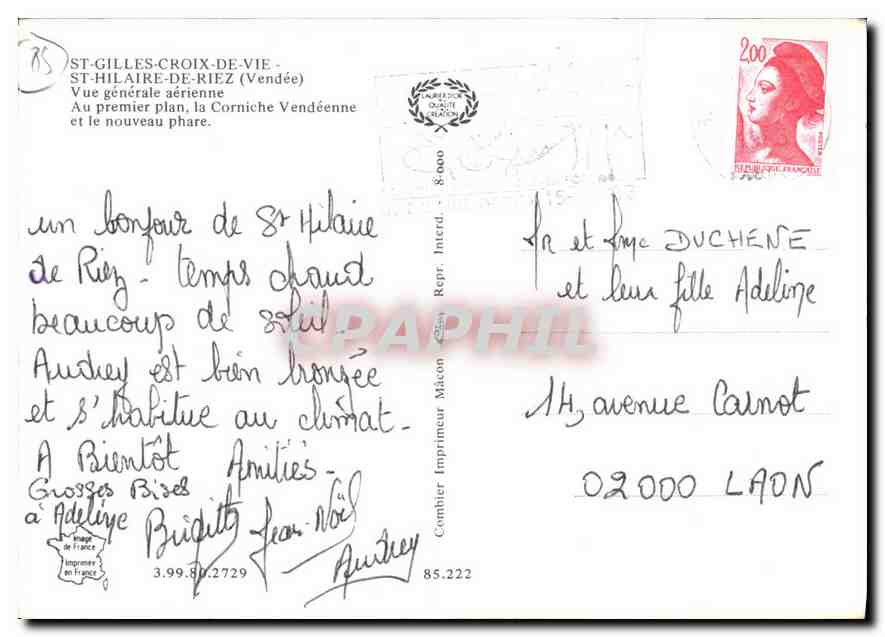 85
ST-GILLES-CROIX-DE-VIE -
ST-HILAIRE-DE-RIEZ (Vendée)
Vue générale aérienne
Au premier plan, la Corniche Vendéenne
et le nouveau phare.
LAURIER D'OR
QUALITE
CREATION
2,00
POSTES
REPUBLIQUE FRANÇAISE
un bonjour de St Hilaire
de Riez - temps chaud
beaucoup de soleil -
Audrey est bien bronzée
et s'habitue au climat -
A Bientôt Amitiés -
Grosses Bises
à Adeline
Brigitte Jean-Noël
Audrey
Image
de France
Imprimée
en France
3.99.80.2729
85.222
Combier Imprimeur Mâcon
Repr. Interd. - 8-000
CPAPHIL
Mr et Mme DUCHENE
et leur fille Adeline
14, avenue Carnot
02000 LAON